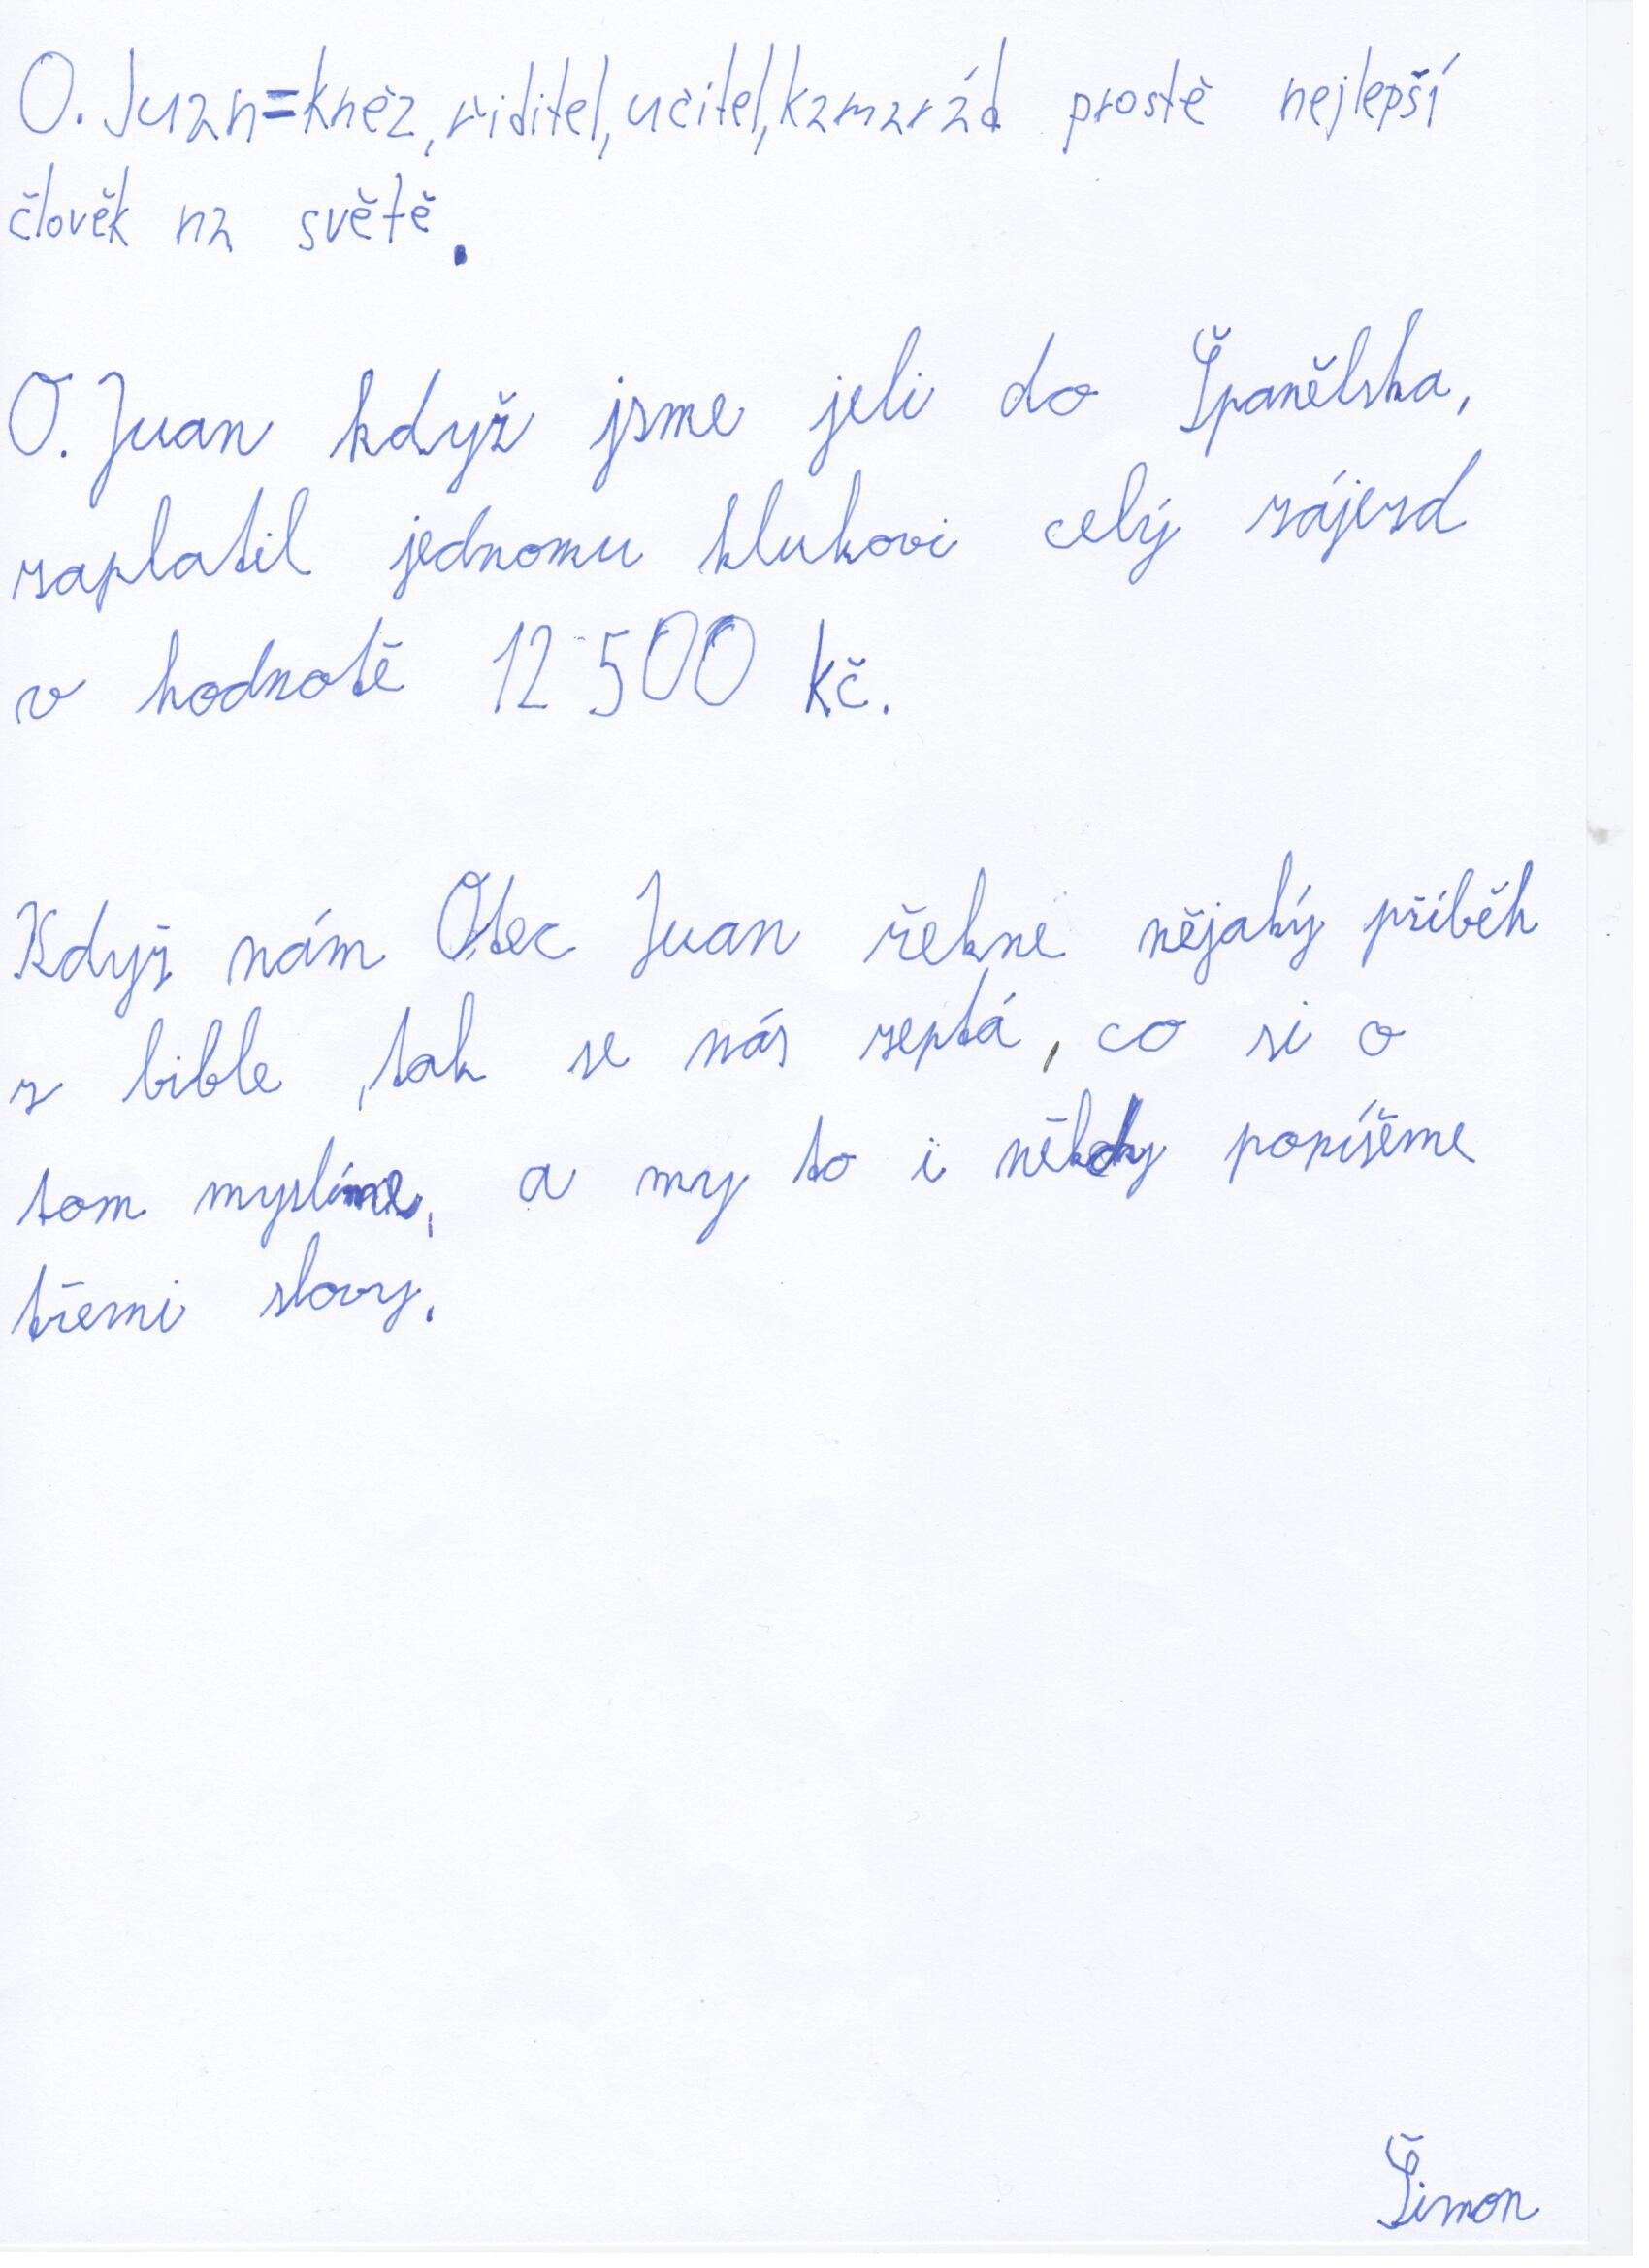 O. Juan=kněz, řiditel, učitel, kamarád prostě nejlepší
člověk na světě.
O. Juan když jsme jeli do Španělska,
zaplatil jednomu klukovi celý zájezd
v hodnotě 12 500 kč.
Když nám Otec Juan řekne nějaký příběh
z bible ,tak se nás zeptá, co si o
tom myslíme, a my to i někdy popíšeme
třemi slovy.
Šimon